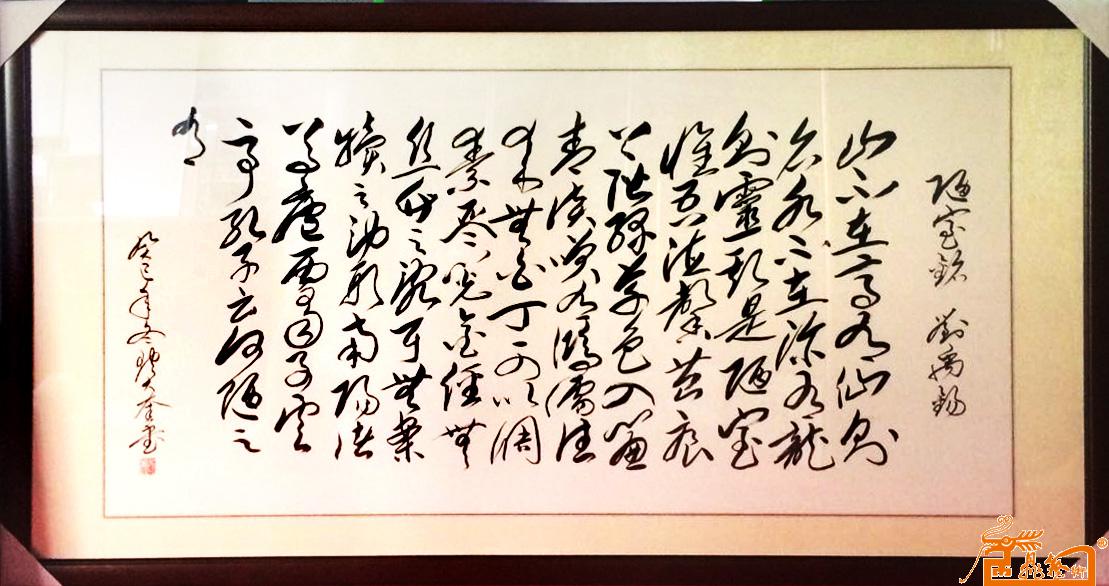 陋室銘 劉禹錫
山不在高有仙則
名水不在深有龍
則靈斯是陋室
惟吾德馨苔痕
上階綠草色入簾
青談笑有鴻儒往
來無白丁可以調
素琴閱金經無
絲竹之亂耳無案
牘之勞形南陽諸
葛廬西蜀子雲
亭孔子云何陋之
有
癸巳年冬大奎書